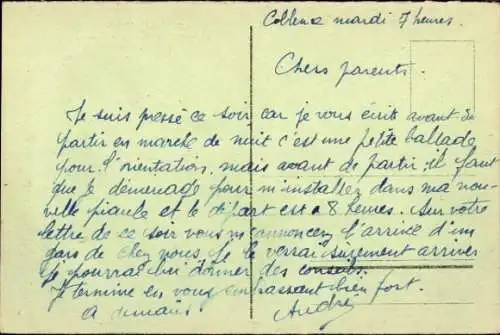 Coblenz mardi 7 heures.
Chers parents.
Je suis pressé ce soir car je vous écris avant de
partir en marche de nuit c'est une petite ballade
pour l'orientation, mais avant de partir il faut
que je demenage pour m'installer dans ma nou-
velle piaule et le départ est a 8 heures. Sur votre
lettre de ce soir vous m'annoncez l'arrivé d'un
gars de chez nous. Je le verrai surement arriver
je pourrai lui donner des conseils.
Je termine en vous embrassant bien fort.
a demain André